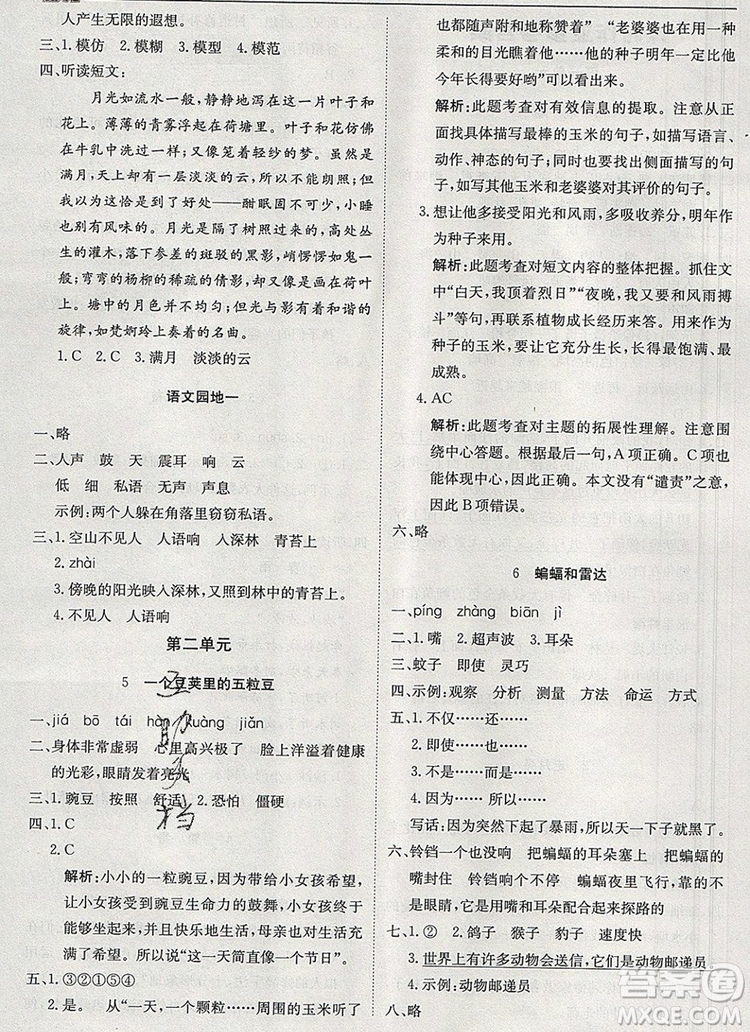 人产生无限的遐想。
三、1. 模仿 2. 模糊 3. 模型 4. 模范
四、听读短文:
月光如流水一般，静静地泻在这一片叶子和
花上。薄薄的青雾浮起在荷塘里。叶子和花仿佛
在牛乳中洗过一样；又像笼着轻纱的梦。虽然是
满月，天上却有一层淡淡的云，所以不能朗照；但
我以为这恰是到了好处——酣眠固不可少，小睡
也别有风味的。月光是隔了树照过来的，高处丛
生的灌木，落下参差的斑驳的黑影，峭愣愣如鬼一
般；弯弯的杨柳的稀疏的倩影，却又像是画在荷叶
上。塘中的月色并不均匀；但光与影有着和谐的
旋律，如梵婀玲上奏着的名曲。
1. C C 3. 满月 淡淡的云
语文园地一
一、略
二、人声 鼓 天 震耳 响 云
低 细 私语 无声 声息
示例：两个人躲在角落里窃窃私语。
三、1. 空山不见人 人语响 入深林 青苔上
2. zhài
3. 傍晚的阳光映入深林，又照到林中的青苔上。
4. 不见人 人语响
第二单元
5 一个豆荚里的五粒豆
一、jiá bō tái kuàng jiǎn
二、身体非常虚弱 心里高兴极了 脸上洋溢着健康
的光彩，眼睛发着亮光
三、1. 豌豆 按照 舒适 2. 恐怕 僵硬
四、1. C
2. C
解析：小小的一粒豌豆，给小女孩带来了希望，
让小女孩受到生命力的鼓舞，小女孩的病终于
能够坐起来，并且快乐地生活，妈妈也对生活充
满了希望。所以说“这一天简直像一个节日”。
五、1. ③②①⑤④
2. 是。 从“一天，一个颗粒……周围的玉米听了
也都随声附和地称赞着” “老婆婆也在用一种
柔和的目光瞧着他……他的种子明年一定比他
今年长得更棒！”可以看出来。
解析：此题考查对有效信息的提取。注意从文中
找出具体描写最棒的玉米的句子，如描写语言、
动作、神态的句子；同时也要找出侧面描写的句
子，如其他玉米和老婆婆对其评价的句子。
3. 想让他多接受阳光和风雨，多吸收养分，明年
作为种子来用。
解析：此题考查对短文内容的整体把握。抓住文
中“白天，我顶着烈日”“夜晚，我又和风雨搏
斗”等句，再联系植物成长经历来答。用来作为
种子的玉米，要让它充分生长，长得更饱满，所
以最后采收。
4. AC
解析：此题考查对主题的拓展性理解。要注意
围绕中心答题。根据最后一句，A 项正确。C 项
也能体现中心，因此正确。本文没有“谴责”之意，
因此 B 项错误。
六、略
6 蝙蝠和雷达
一、píng zhàng biān jì
二、1. 嘴 2. 超声波 3. 耳朵
三、蚊子 即使 灵巧
四、示例：观察 分析 测量 方法 命运 方式
五、1. 不仅……还……
2. 即使……也……
3. 不是……而是……
4. 因为……所以……
写话：因为突然下起了暴雨，所以天一下子就黑了。
六、铃铛一个也没响 把蝙蝠的耳朵塞上 把蝙蝠的
嘴封住 它们的飞行本领非常高 蝙蝠夜里飞行
不是用眼睛，它们是用嘴和耳朵配合起来探路的
七、1. ② 2. 鸽子 猴子 豹子 速度快
3. 世界上有许多动物会送信，它们是动物邮递员
4. 示例：动物邮递员
八、略
互助文档
答案圈
MXQE.COM